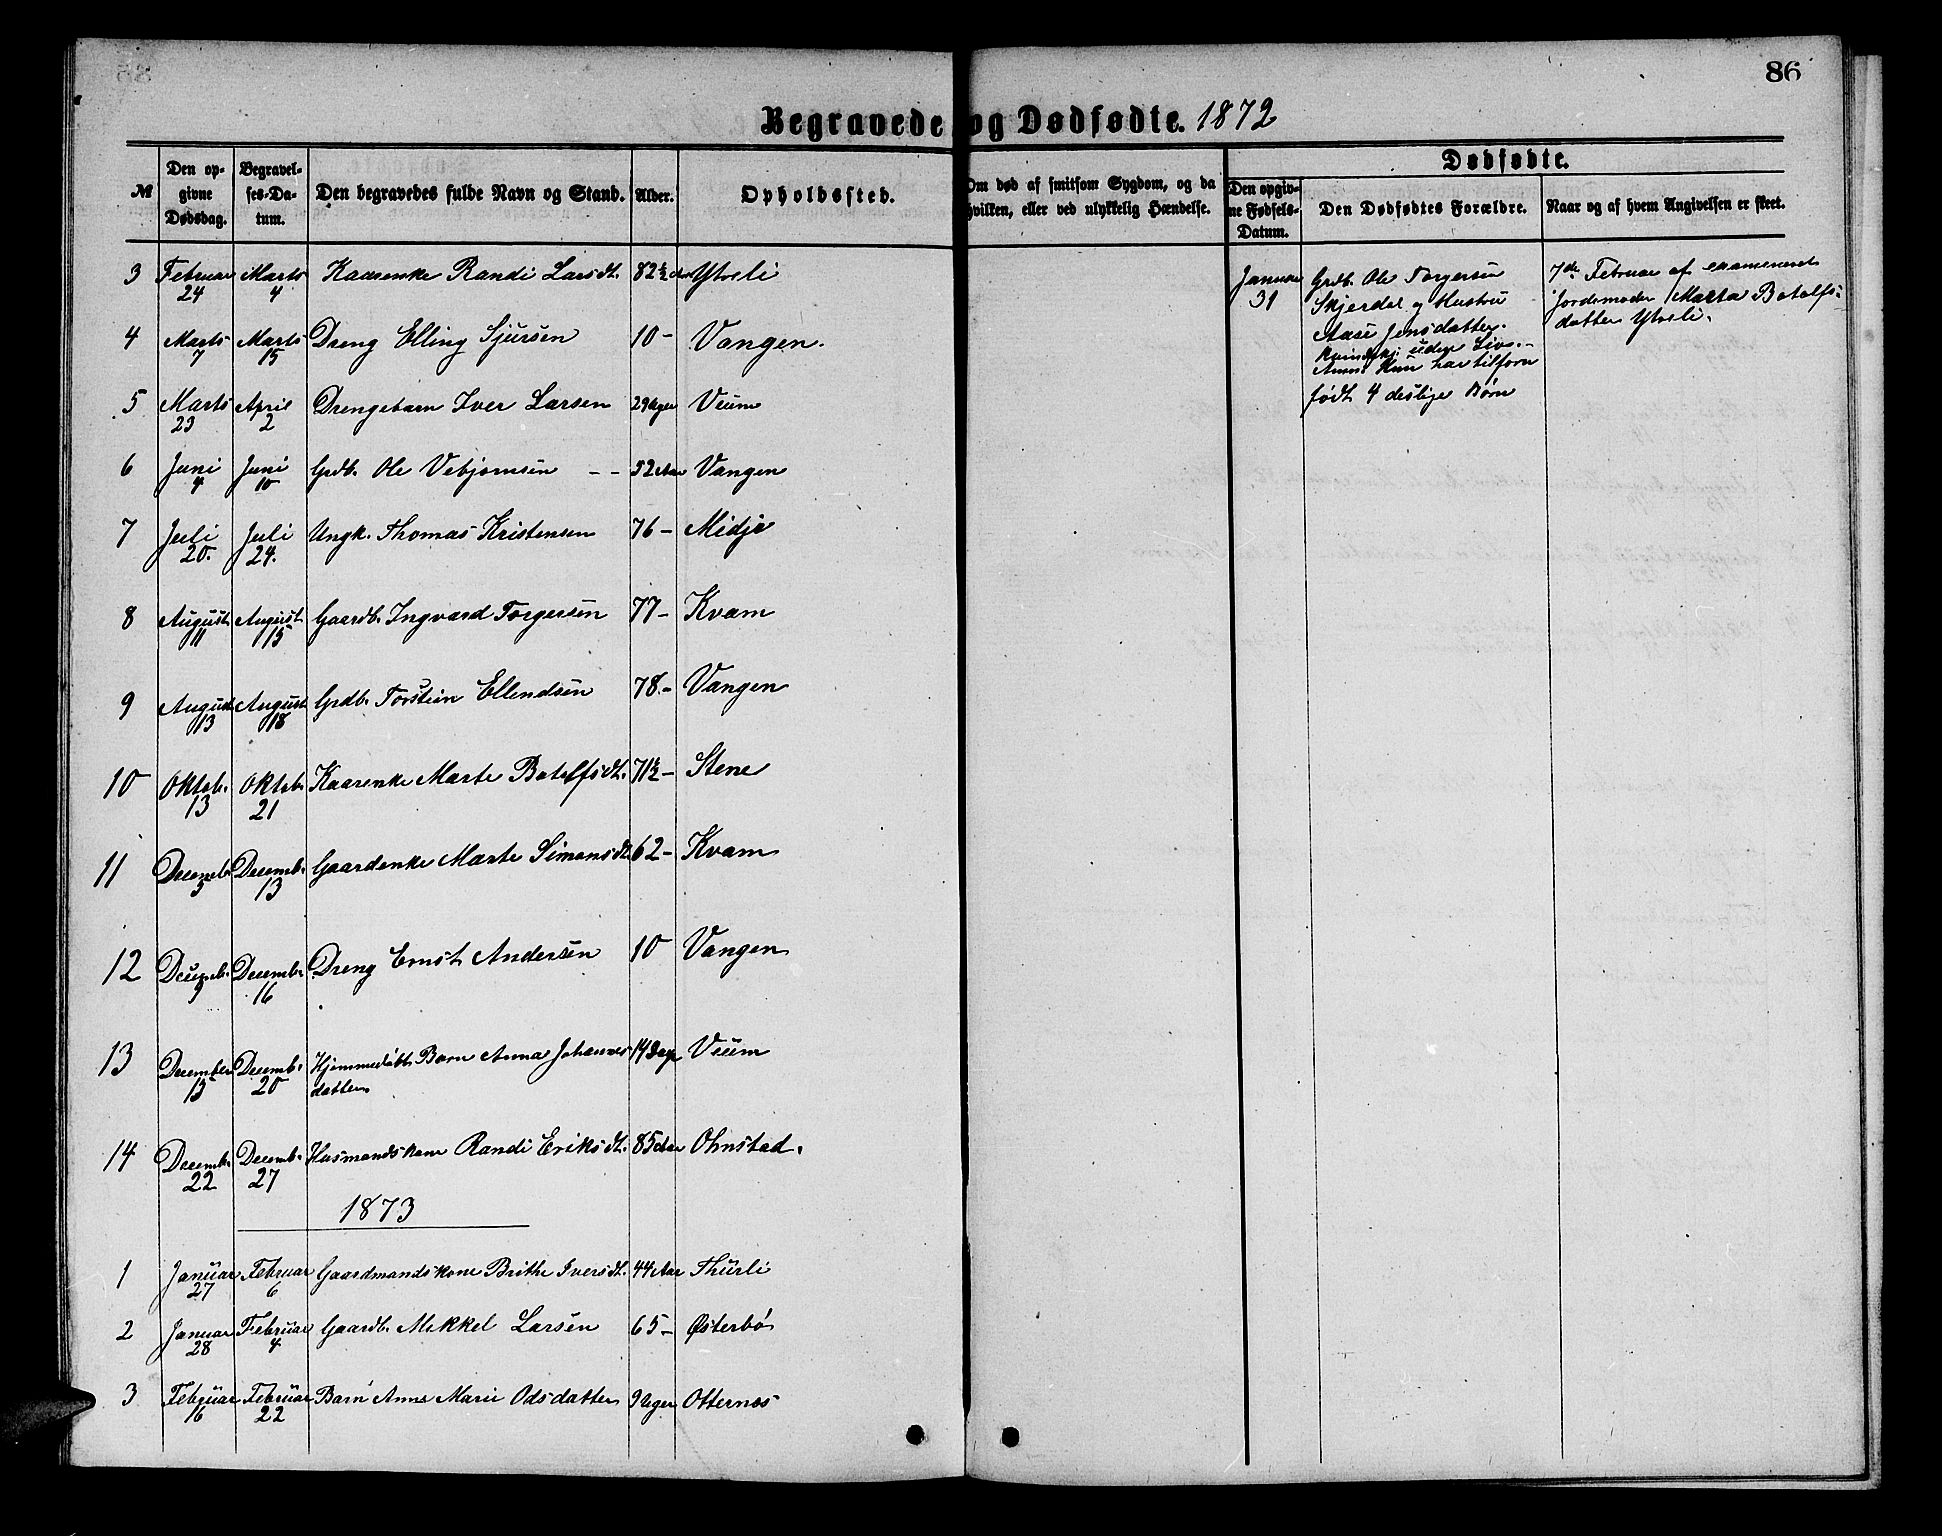 86
Begravede og Dødfødte. 1872
№
Den opgivne Dødsdag.
Begravelses-Datum.
Den begravedes fulde Navn og Stand.
Alder.
Opholdssted.
Om død af smitsom Sygdom, og da hvilken, eller ved ulykkelig Hændelse.
Dødfødte.
Den opgivne Fødsels-Datum.
Den Dødfødtes Forældre.
Naar og af hvem Angivelsen er skeet.
3 Februar 24 Marts 4 Kaarenke Randi Larsdt. 82½ Aar Ytreli
4 Marts 7 Marts 15 Dreng Elling Sjursen 10 - Vangen.
5 Marts 23 April 2 Drengebarn Iver Larsen 23 Uger Veum
6 Juni 4 Juni 10 Grdb. Ole Vebjørnsen - - 52 Aar Vangen
7 Juli 20. Juli 24. Ungk. Thomas Kristensen 76 - Midje
8 August 11 August 15 Gaardb. Ingvard Torgersen 77 - Kvam
9 August 13 August 18 Grdb. Torstein Ellendsen 78. - Vangen
10 Oktob. 13 Oktob. 21 Kaarenke Marte Botolfsdt. 71½ - Stene
11 Decemb. 5 Decemb. 13 Gaardenke Marte Simonsdt. 62 - Kvam
12 Decemb. 9 Decemb. 16 Dreng Ernst Andersen 10 Vangen
13 December 13 Decemb. 20 Hjemmedøbt Barn Anna Johannes-
datter 14 Dage Veum
14 Decemb. 22 Decemb. 27 Husmandskone Randi Eriksdt. 85 Aar Ohnstad.
1873
1 Januar 27 Februar 6 Gaardmandskone Brithe Iversdt. 44 Aar Thurli
2 Januar 28 Februar 4 Gaardb. Mikkel Larsen 65 - Østerbø
3 Februar 16 Februar 22 Barn Anne Marie Odsdatter 9 Uger Otternes
Januar 31
Grdb. Ole Torgersen
Skjerdal og Hustru
Aase Jensdatter.
uden Livs.-
Hun har tilforn
født 4 deslige Børn
7de Februar af examineret
Jordemoder Marta Botolfs-
datter Ytreli.